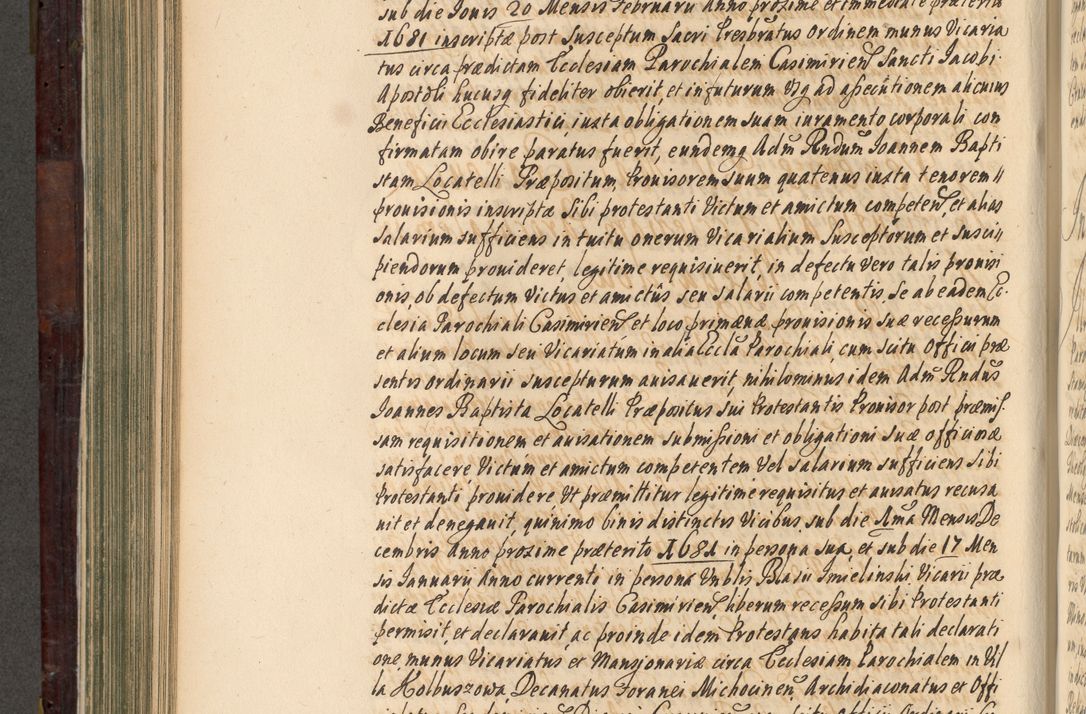 sub die Jovis 20 Mensis Februarii Anno proxime et immediate præterito
1681 inscriptæ post susceptum Sacri Presbratus Ordinem munus Vicaria
tus circa prædictam Ecclesiam Parochialem Casimirien Sancti Jacobi
Apostoli hucusq fideliter obierit, et in futurum Usq ad assecutionem alicuius
Beneficii Ecclesiastici, iuxta obligationem suam iuramento corporali con
firmatam obire paratus fuerit, eundemq Adm Rndum Joannem Bapti
stam Locatelli Præpositum, Provisorem suum quatenus iuxta tenorem
provisionis inscriptæ sibi protestanti Victum et amictum competen, et alias
salarium sufficiens intuitu onerum Vicarialium Susceptorum et susci
piendorum provideret, legitime requisiverit, in defectu vero talis provisi
onis, ob defectum Victus et amictus seu salarii competentis, se ab eadem Ec
clesia Parochiali Casimirien et loco primævæ provisionis suæ recessurum
et alium locum seu Vicariatum in alia Eccla Parochiali, cum scitu Officii præ
sentis ordinarii suscepturum avisaverit, nihilominus idem Adm Rndus
Joannes Baptista Locatelli Præpositus sui Protestantis Provisor post præmis
sam requisitionem et avisationem submissioni et obligationi suæ officiosæ
satisfacere Victum et amictum competentem Vel salarium sufficiens sibi
Protestanti providere Ut præmittitur legitime requisitus et avisatus recusa
vit et denegavit, quinimo binis distinctis Vicibus, sub die Ima Mensis De
cembris Anno proxime præterito 1681 in persona sua, et sub die 17 Men
sis Januarii Anno currenti in persona Vnblis Blasii Imielinski Vicarii præ
dictæ Ecclesiæ Parochialis Casimirien, liberum recessum sibi Protestanti
permisit, et declaravit, ac proinde idem Protestans habita tali declarati
one, munus Vicariatus et Mansjonariæ circa Ecclesiam Parochialem in Vil
la Kolbuszowa, Decanatus Foranei Michocinen, Archidiaconatus et Offi